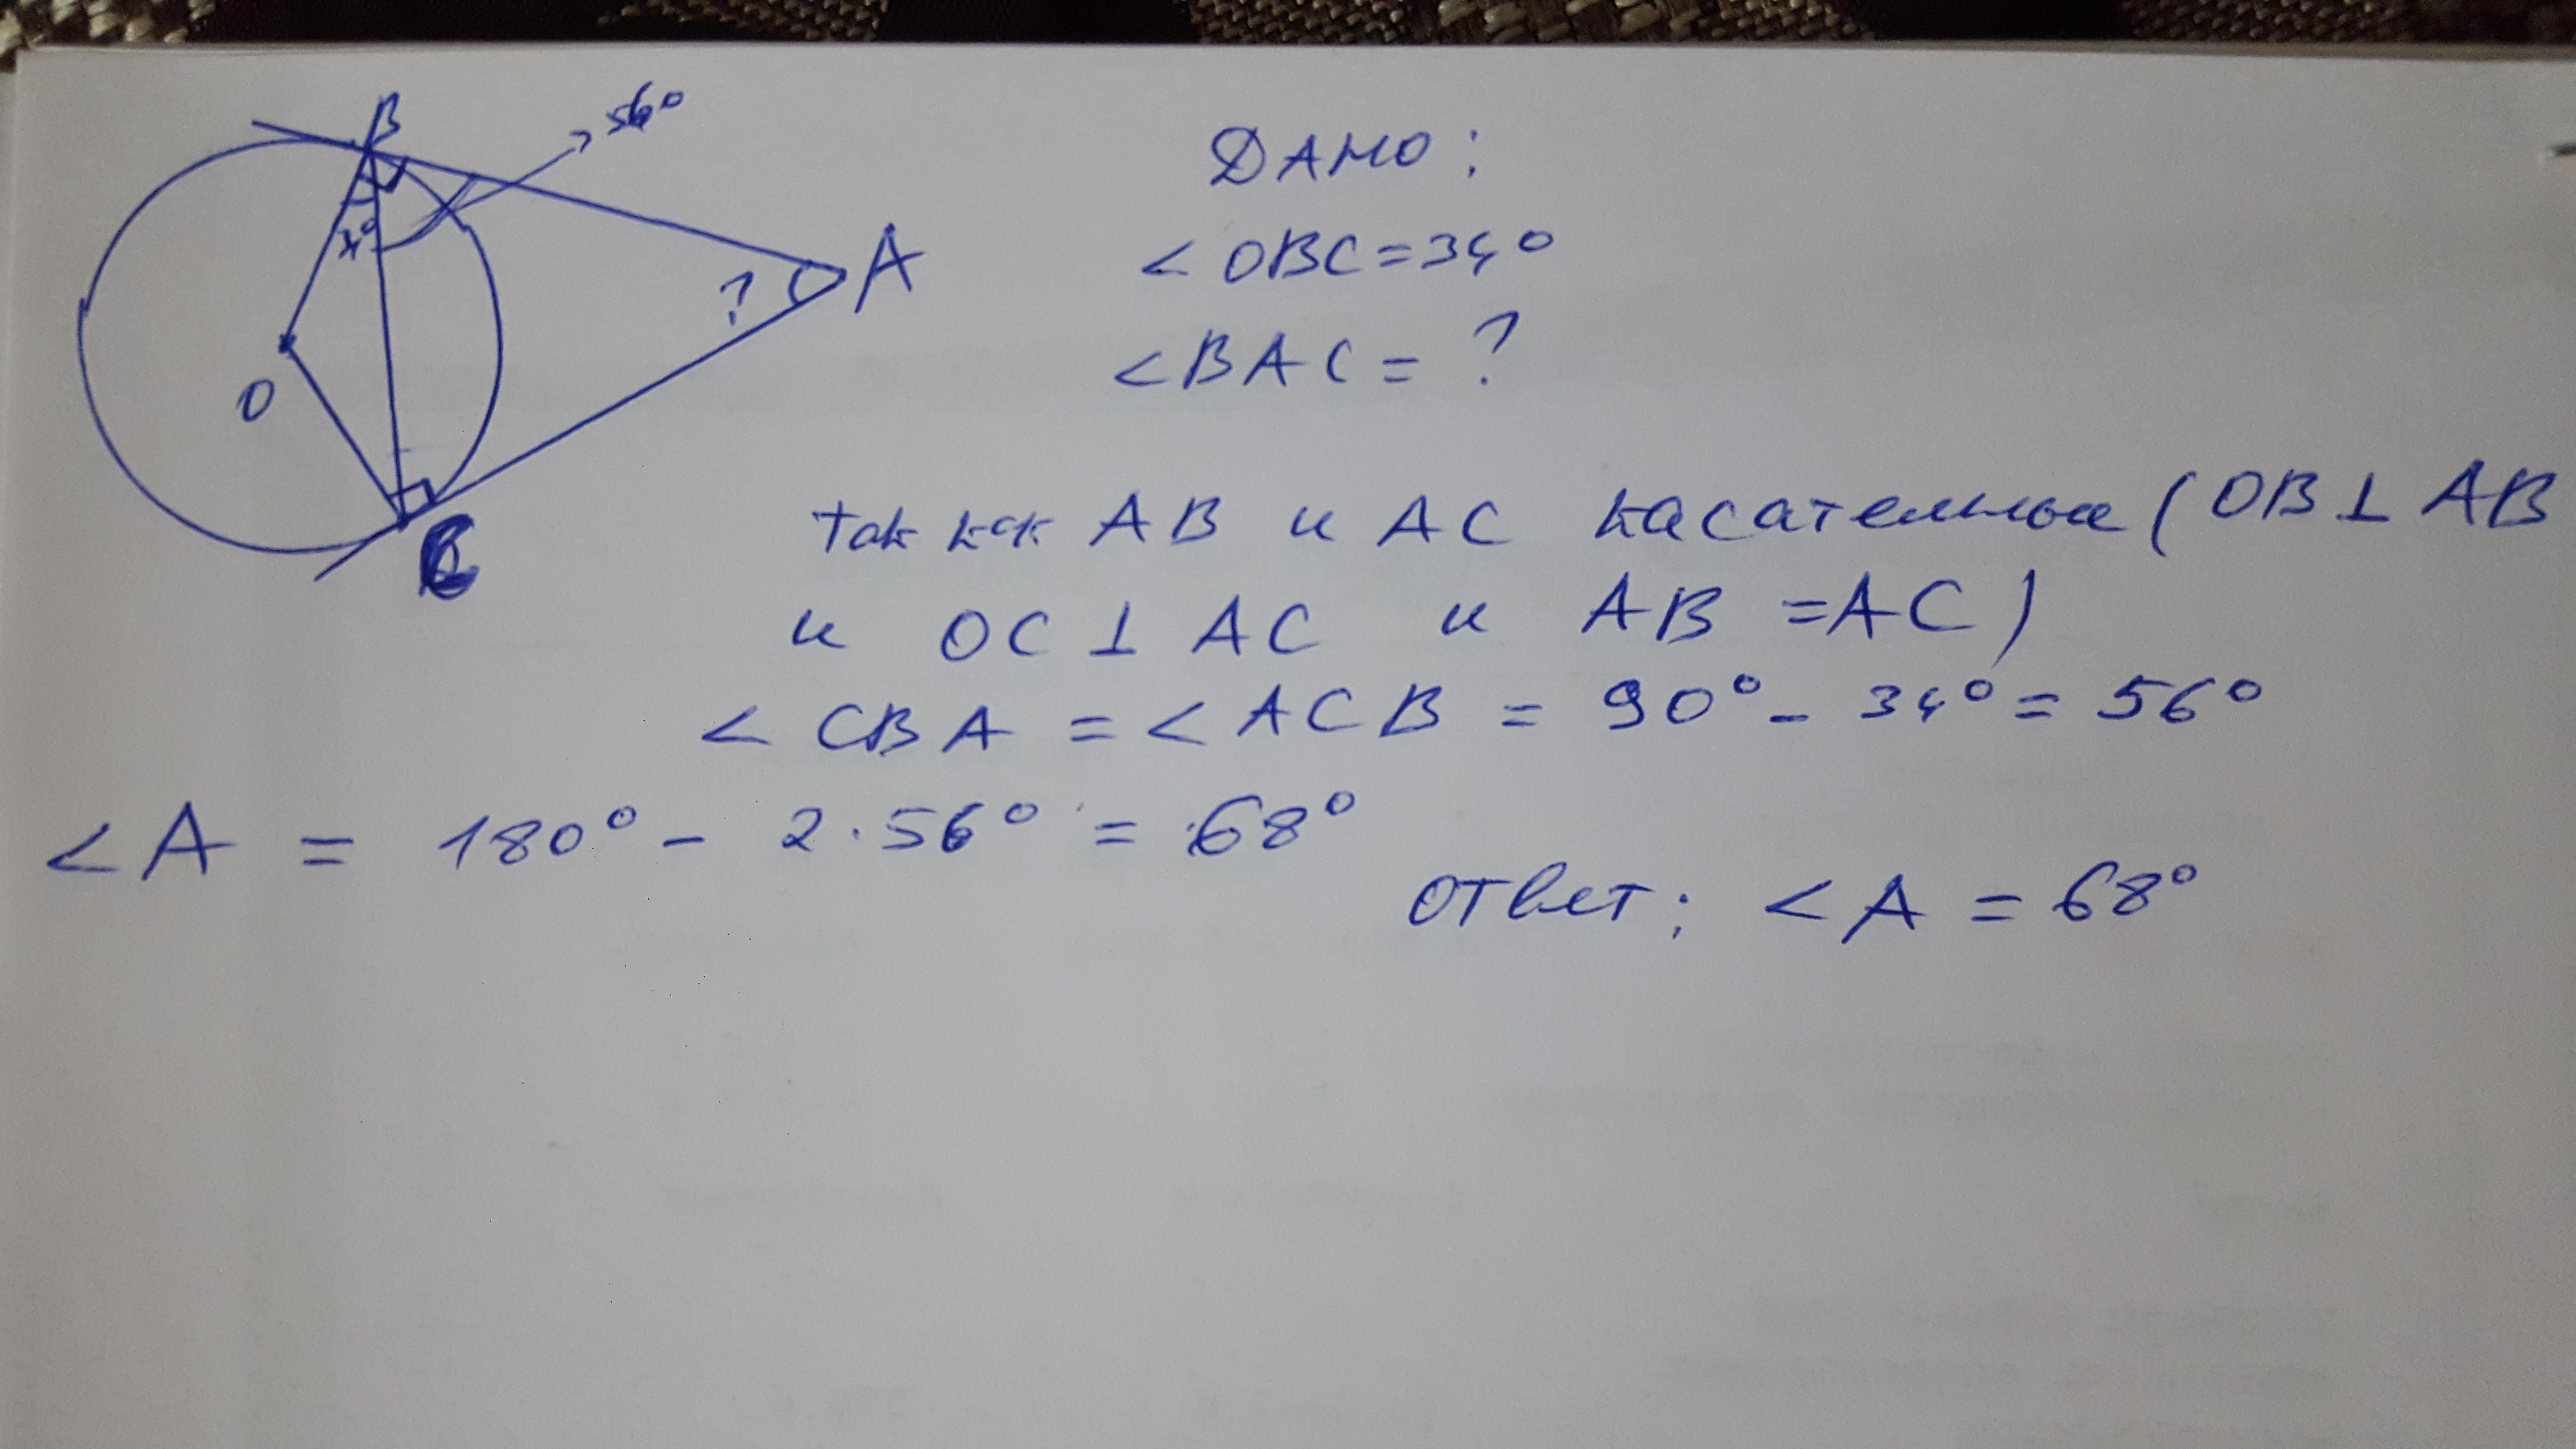 B
56°
A
?
O
C
ДАНО:
< OBC = 34°
< BAC = ?
так как AB и AC касательные (OB ⊥ AB
и OC ⊥ AC и AB = AC)
< CBA = < ACB = 90° - 34° = 56°
< A = 180° - 2 · 56° = 68°
ответ: < A = 68°